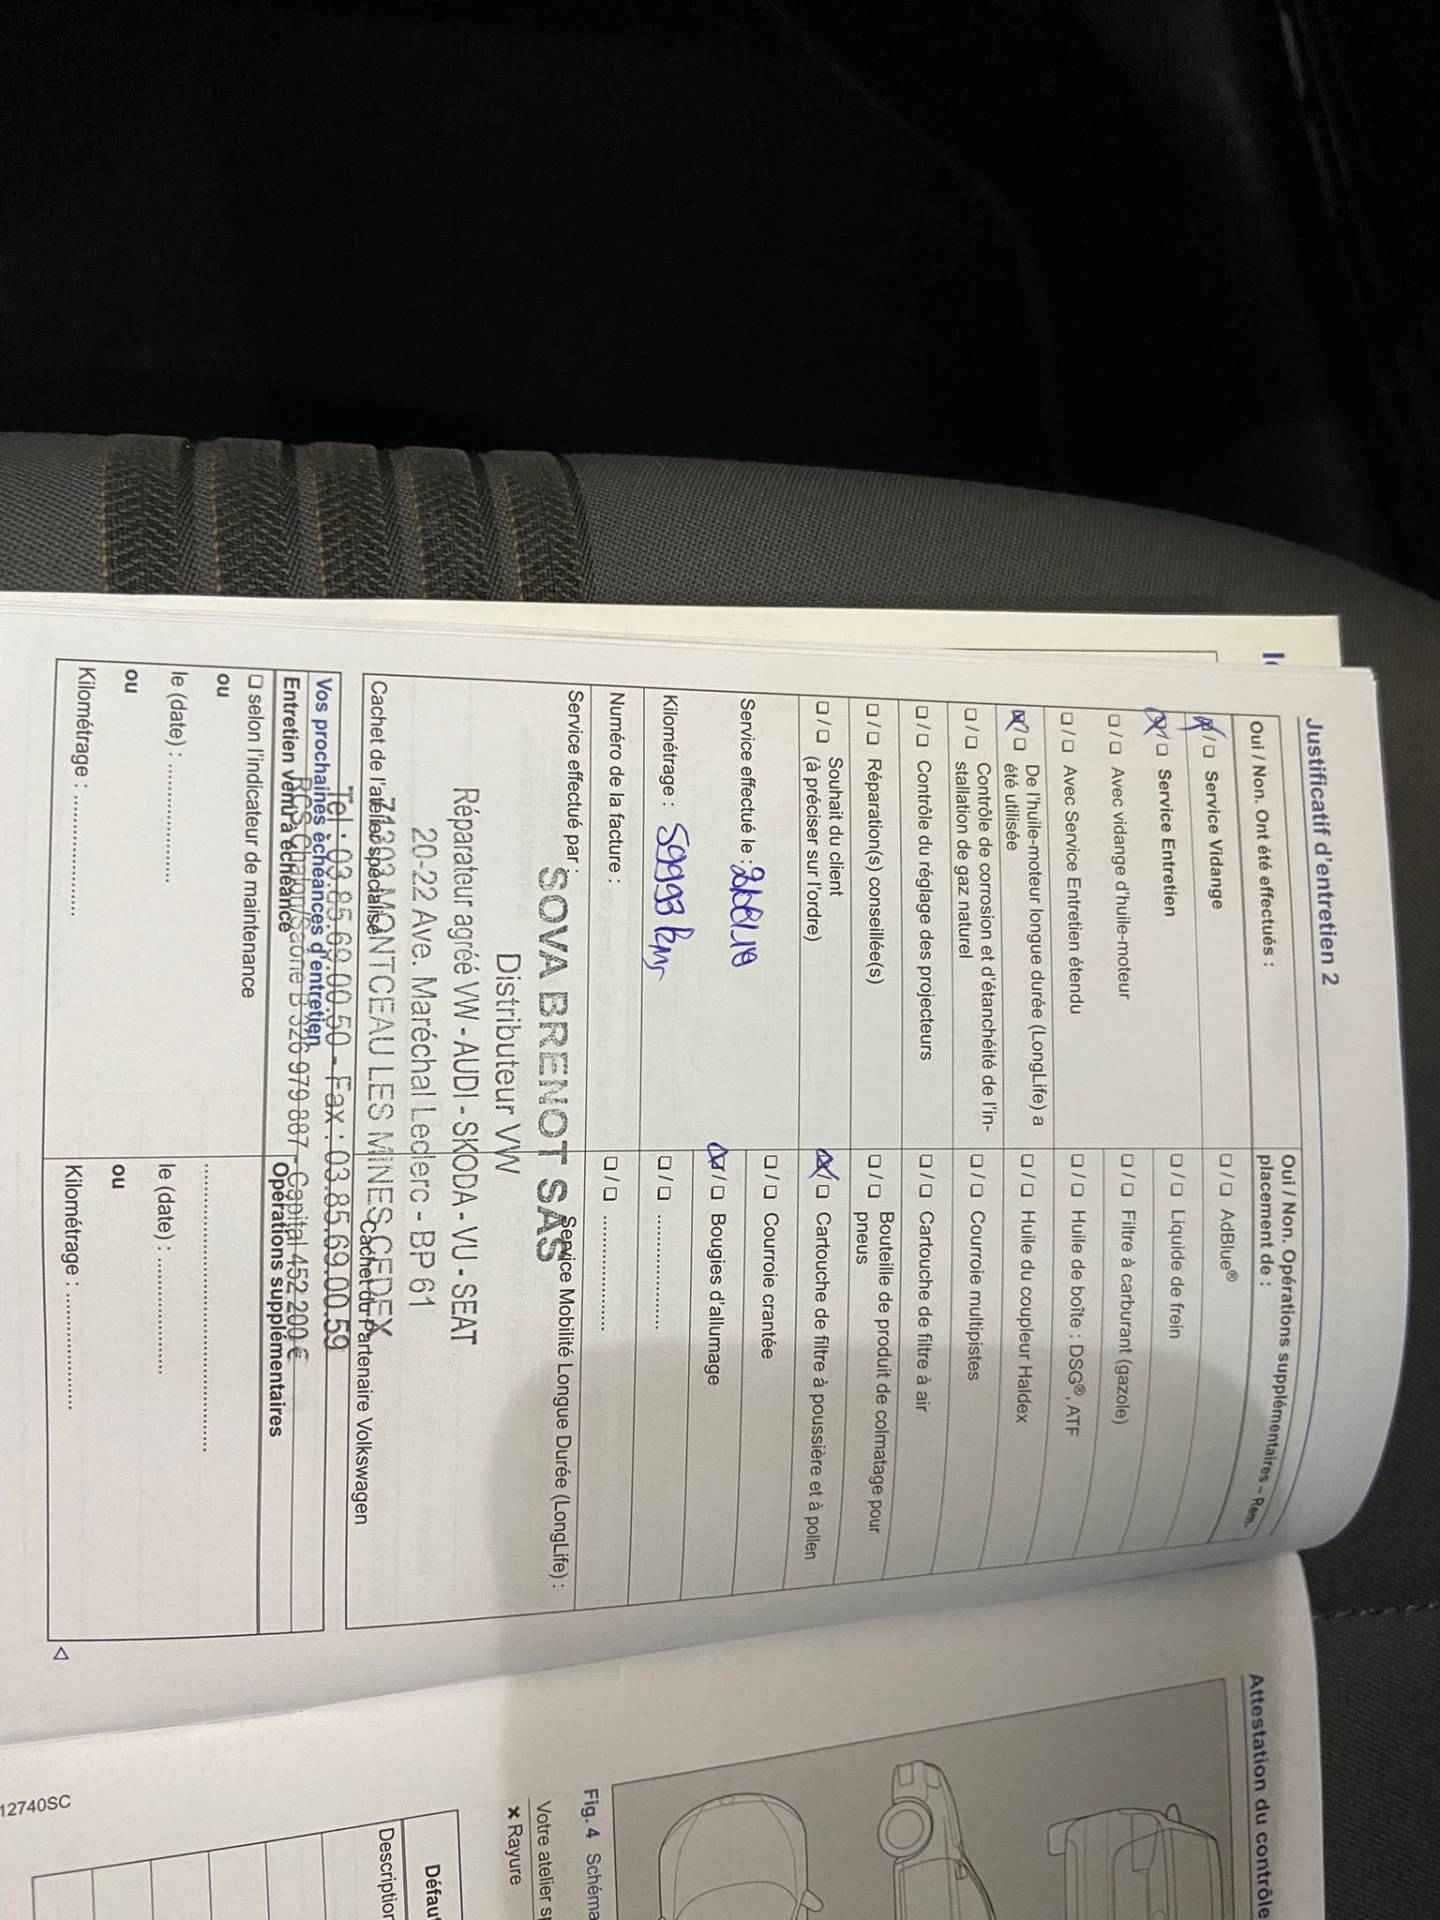 Justificatif d'entretien 2
Oui / Non. Ont été effectués :
☒ / ☐ Service Vidange
☒ / ☐ Service Entretien
☐ / ☐ Avec vidange d'huile-moteur
☐ / ☐ Avec Service Entretien étendu
☒ / ☐ De l'huile-moteur longue durée (LongLife) a
été utilisée
☐ / ☐ Contrôle de corrosion et d'étanchéité de l'in-
stallation de gaz naturel
☐ / ☐ Contrôle du réglage des projecteurs
☐ / ☐ Réparation(s) conseillée(s)
☐ / ☐ Souhait du client
(à préciser sur l'ordre)
Service effectué le :
Kilométrage : 59993 kms
Numéro de la facture :
Oui / Non. Opérations supplémentaires – Rem.
placement de :
☐ / ☐ AdBlue®
☐ / ☐ Liquide de frein
☐ / ☐ Filtre à carburant (gazole)
☐ / ☐ Huile de boîte : DSG®, ATF
☐ / ☐ Huile du coupleur Haldex
☐ / ☐ Courroie multipistes
☐ / ☐ Cartouche de filtre à air
☐ / ☐ Bouteille de produit de colmatage pour
pneus
☒ / ☐ Cartouche de filtre à poussière et à pollen
☐ / ☐ Courroie crantée
☒ / ☐ Bougies d'allumage
☐ / ☐ .....................
☐ / ☐ .....................
Service effectué par :
Service Mobilité Longue Durée (LongLife) :
SOVA BRENOT SAS
Distributeur VW
Réparateur agréé VW - AUDI - SKODA - VU - SEAT
20-22 Ave. Maréchal Leclerc - BP 61
71303 MONTCEAU LES MINES CEDEX
Tel : 03.85.69.00.50 - Fax : 03.85.69.00.59
RCS Chalon/Saône B 326 979 887 - Capital 452 200 €
Cachet de l'atelier spécialisé
Cachet du Partenaire Volkswagen
Vos prochaines échéances d'entretien
Entretien venu à échéance
☐ selon l'indicateur de maintenance
ou
le (date) : .....................
ou
Kilométrage : .....................
Opérations supplémentaires
..........................................
le (date) : .....................
ou
Kilométrage : .....................
Attestation du contrôle
Fig. 4 Schéma
Votre atelier sp
✖ Rayure
Défaut
Description
12740SC